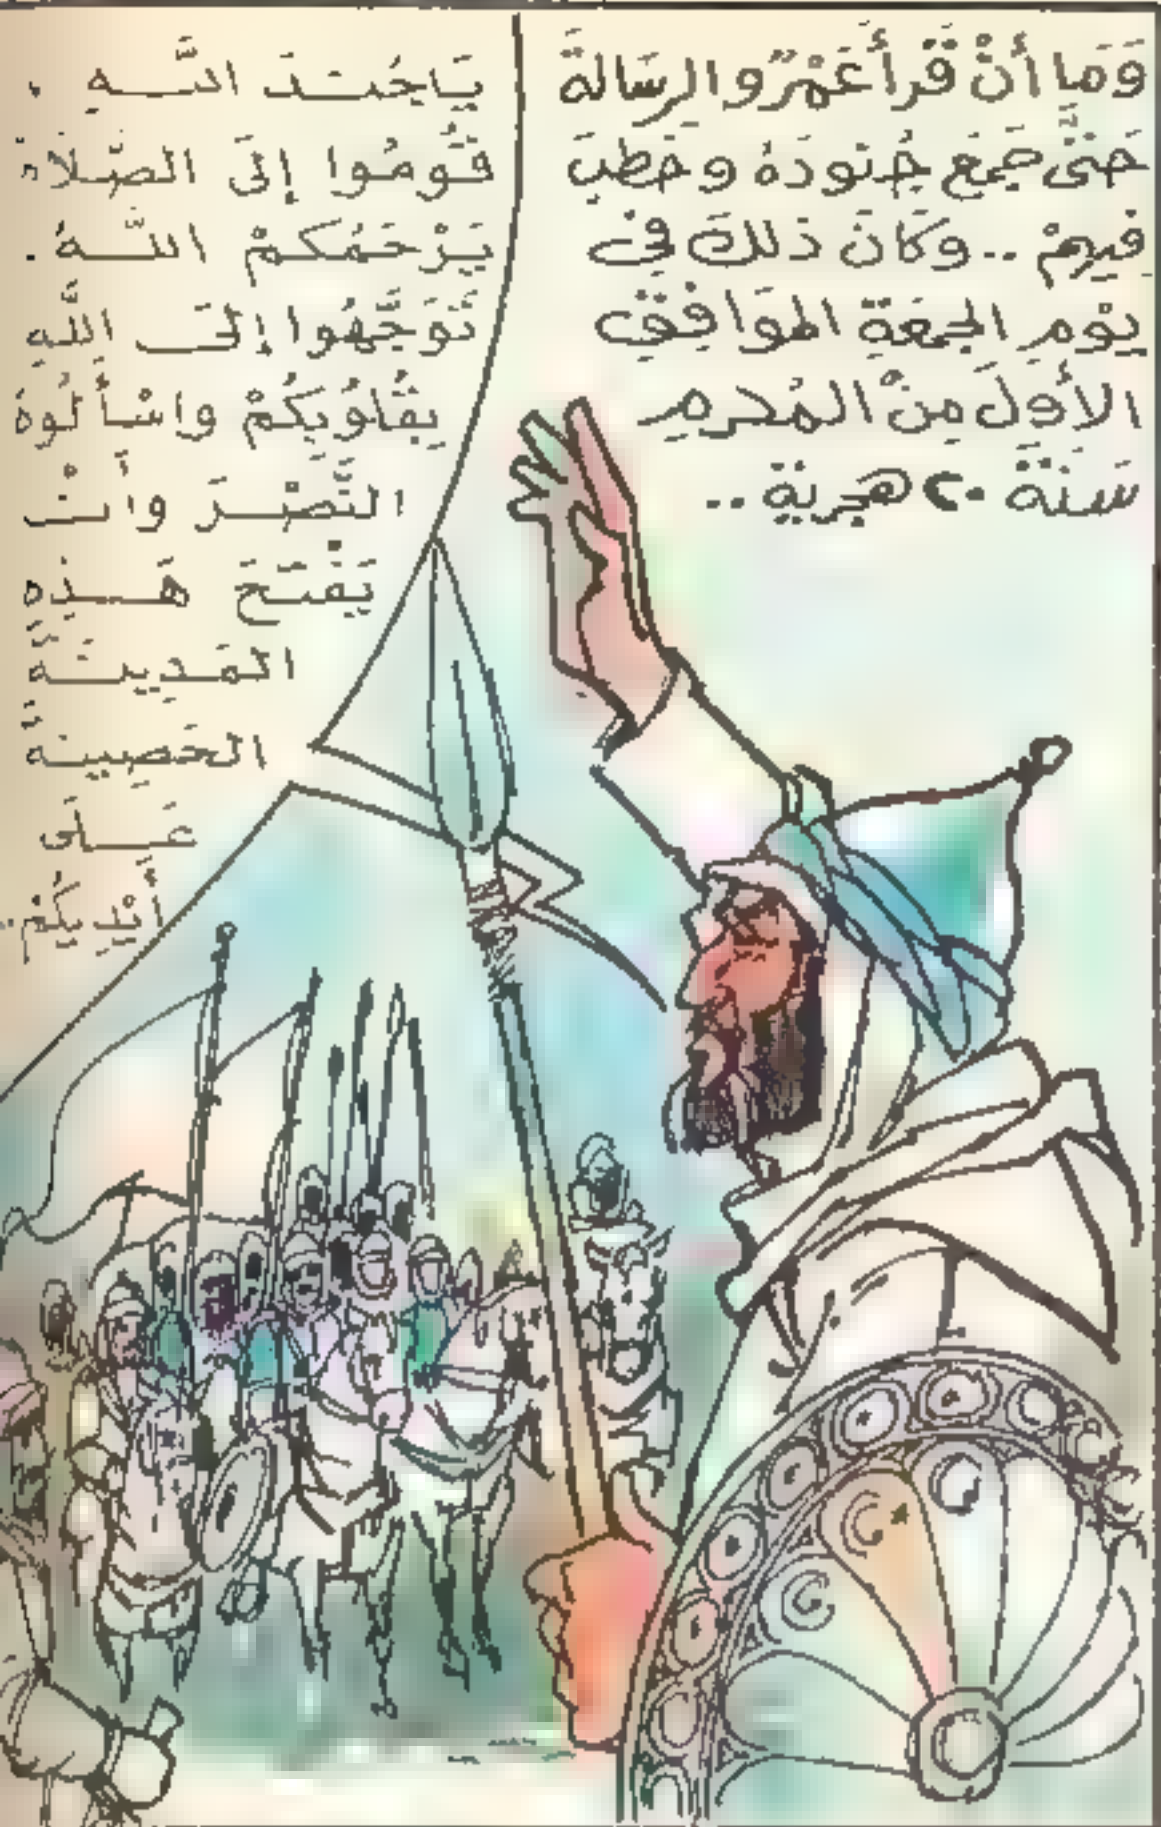 وَمَا أَنْ قَرأَ عَمْرٌو الرِسَالةَ
حَتَّى جَمَعَ جُنودَهُ وخَطبَ
فيهِمْ .. وكَانَ ذلكَ في
يَوْمِ الجمعَةِ الموَافِقِ
الأوَّلَ مِنَ المُحرمِ
سَنَةَ ٢٠ هجريةِ ..
يَاجُنْدَ اللَّهِ ،
قُومُوا إِلَى الصَّلَاةِ
يَرْحَمُكُمْ اللَّهُ .
تَوَجَّهُوا إِلَى اللَّهِ
بِقُلوُبِكُمْ واسْأَلُوهُ
النَّصْرَ وأَنْ
يَفْتَحَ هَذِهِ
المَدِينَةَ
الحَصِينَةَ
عَلَى
أَيْدِيكُمْ ..